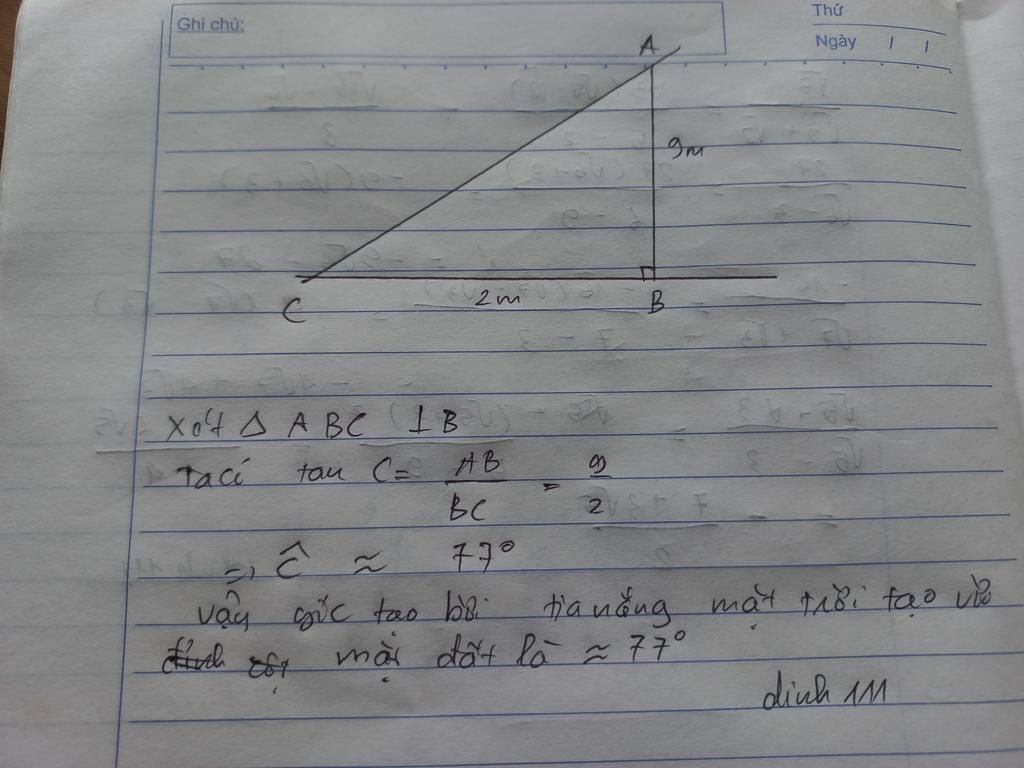 Ghi chú:
Thứ
Ngày / /
A
9m
C 2m B
Xét Δ ABC ⊥ B
Ta có tan C = AB/BC = 9/2
=> Ĉ ≈ 77°
Vậy góc tạo bởi tia nắng mặt trời tạo với
mặt đất là ≈ 77°
dinh 111